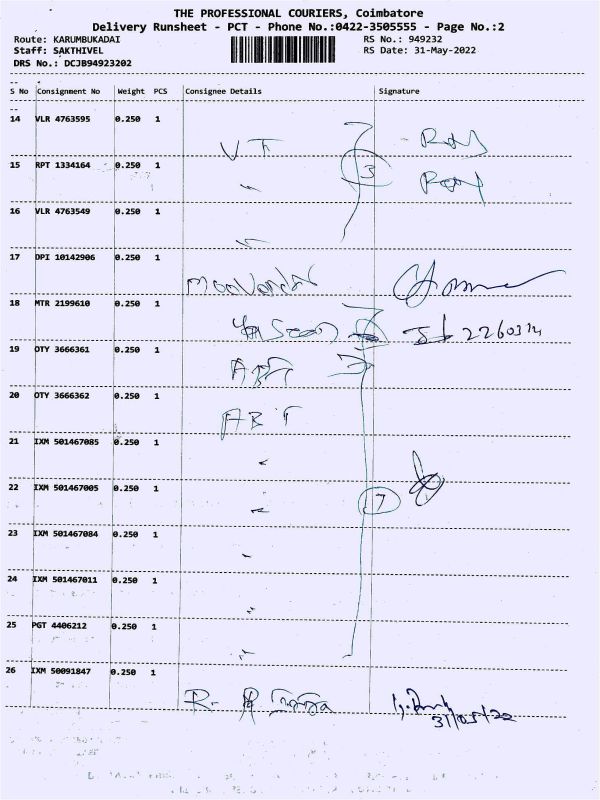 THE PROFESSIONAL COURIERS, Coimbatore
Delivery Runsheet - PCT - Phone No.:0422-3505555 - Page No.:2
Route: KARUMBUKADAI RS No.: 949232
Staff: SAKTHIVEL RS Date: 31-May-2022
DRS No.: DCJB94923202
S No Consignment No Weight PCS Consignee Details Signature
14 VLR 4763595 0.250 1
VF
15 RPT 1334164 0.250 1
3
16 VLR 4763549 0.250 1
17 DPI 10142906 0.250 1
18 MTR 2199610 0.250 1
19 OTY 3666361 0.250 1
20 OTY 3666362 0.250 1
ABT
21 IXM 501467085 0.250 1
22 IXM 501467005 0.250 1
7
23 IXM 501467084 0.250 1
24 IXM 501467011 0.250 1
25 PGT 4406212 0.250 1
26 IXM 50091847 0.250 1
31/05/22